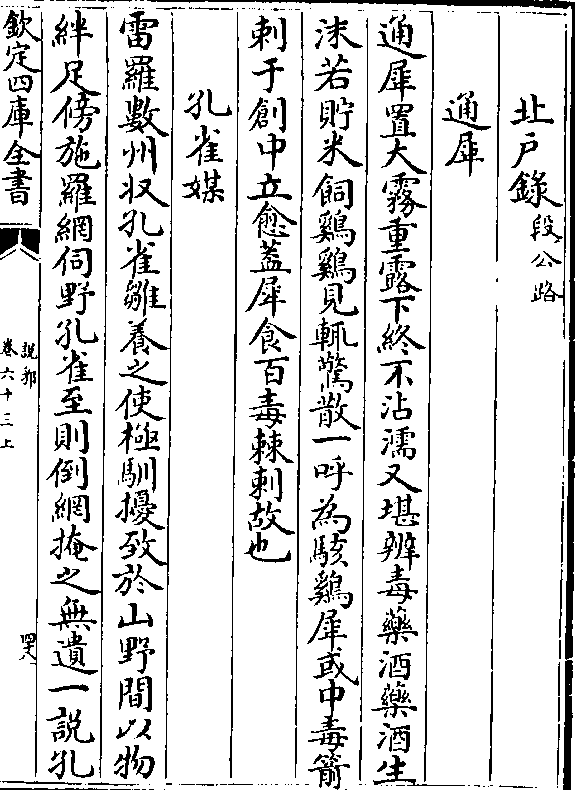 北戶錄 段公路
通犀
通犀置大霧重露下終不沾濡又堪辨毒藥酒藥酒生
沫若貯米飼鷄鷄見輒驚散一呼為駭鷄犀或中毒箭
刺于創中立愈蓋犀食百毒棘刺故也
孔雀媒
雷羅數州収孔雀雛養之使極馴擾致於山野間以物
絆足傍施羅網伺野孔雀至則倒網掩之無遺一說孔
欽定四庫全書
說郛
卷六十三上
四八